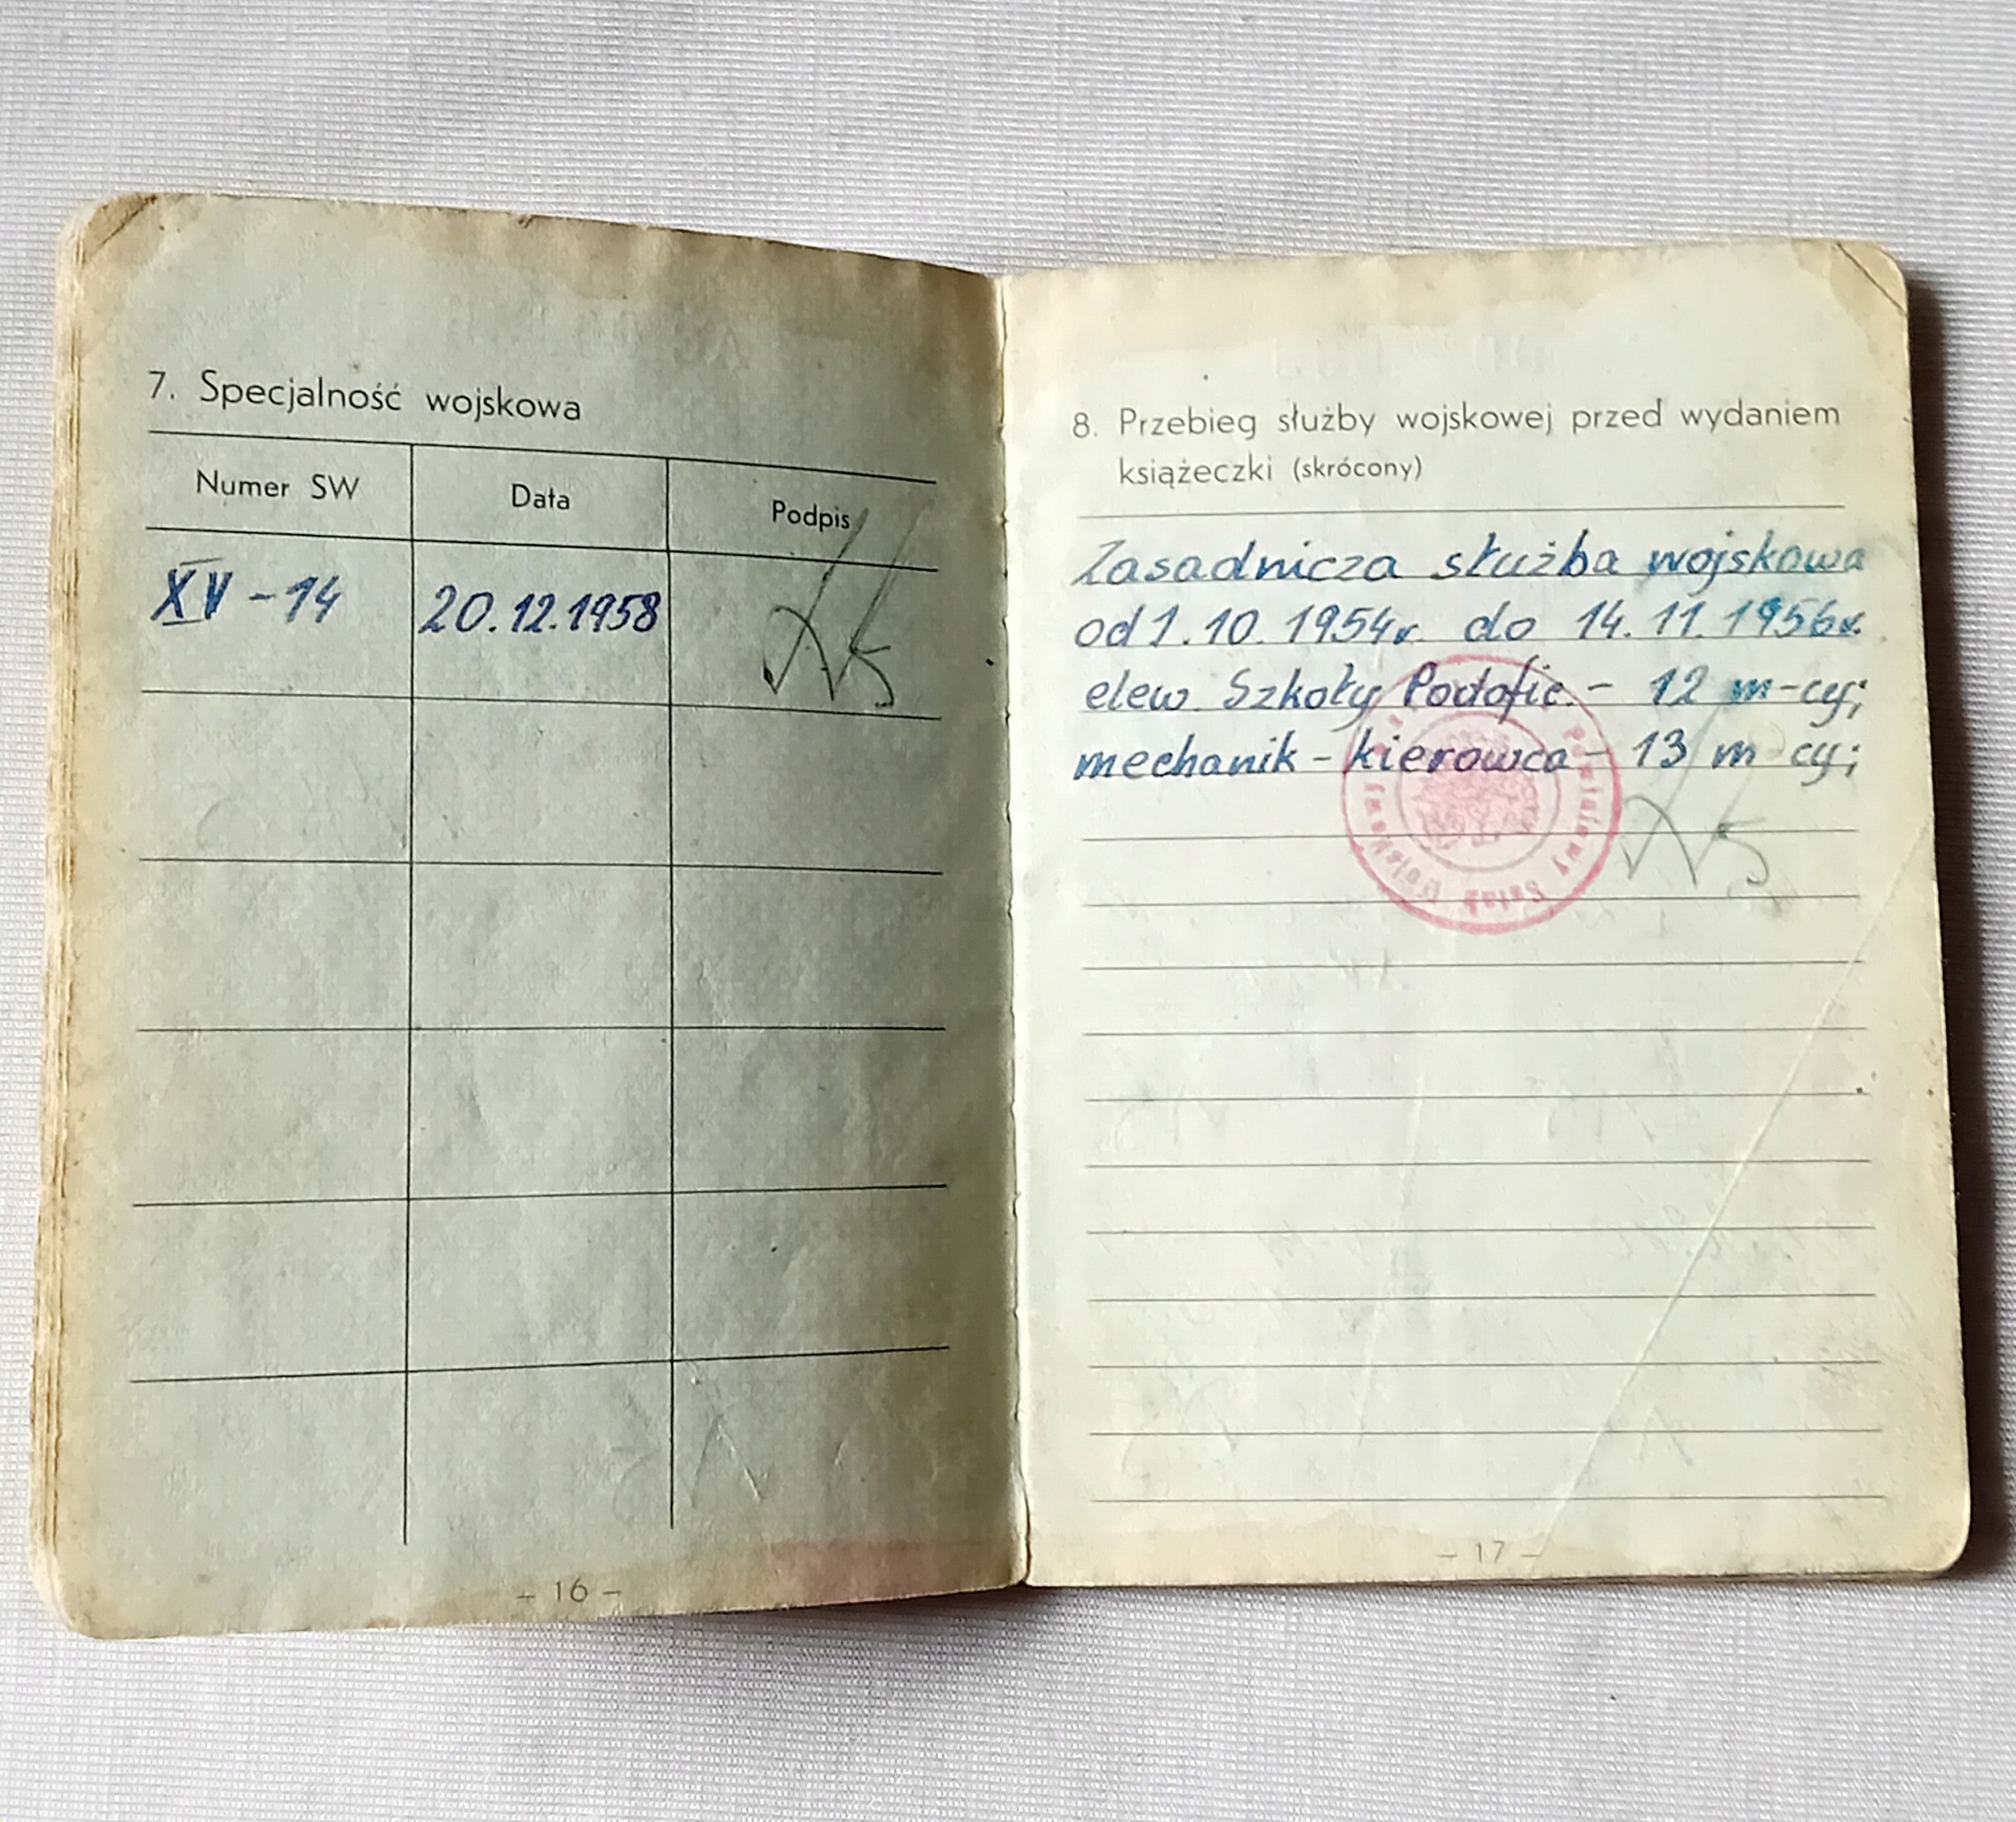 7. Specjalność wojskowa
Numer SW
Data
Podpis
XV-14
20.12.1958
- 16 -
8. Przebieg służby wojskowej przed wydaniem
książeczki (skrócony)
Zasadnicza służba wojskowa
od 1.10.1954r. do 14.11.1956r.
elew Szkoły Podofic. - 12 m-cy;
mechanik - kierowca - 13 m-cy;
Powiatowy Sztab Wojskowy
- 17 -